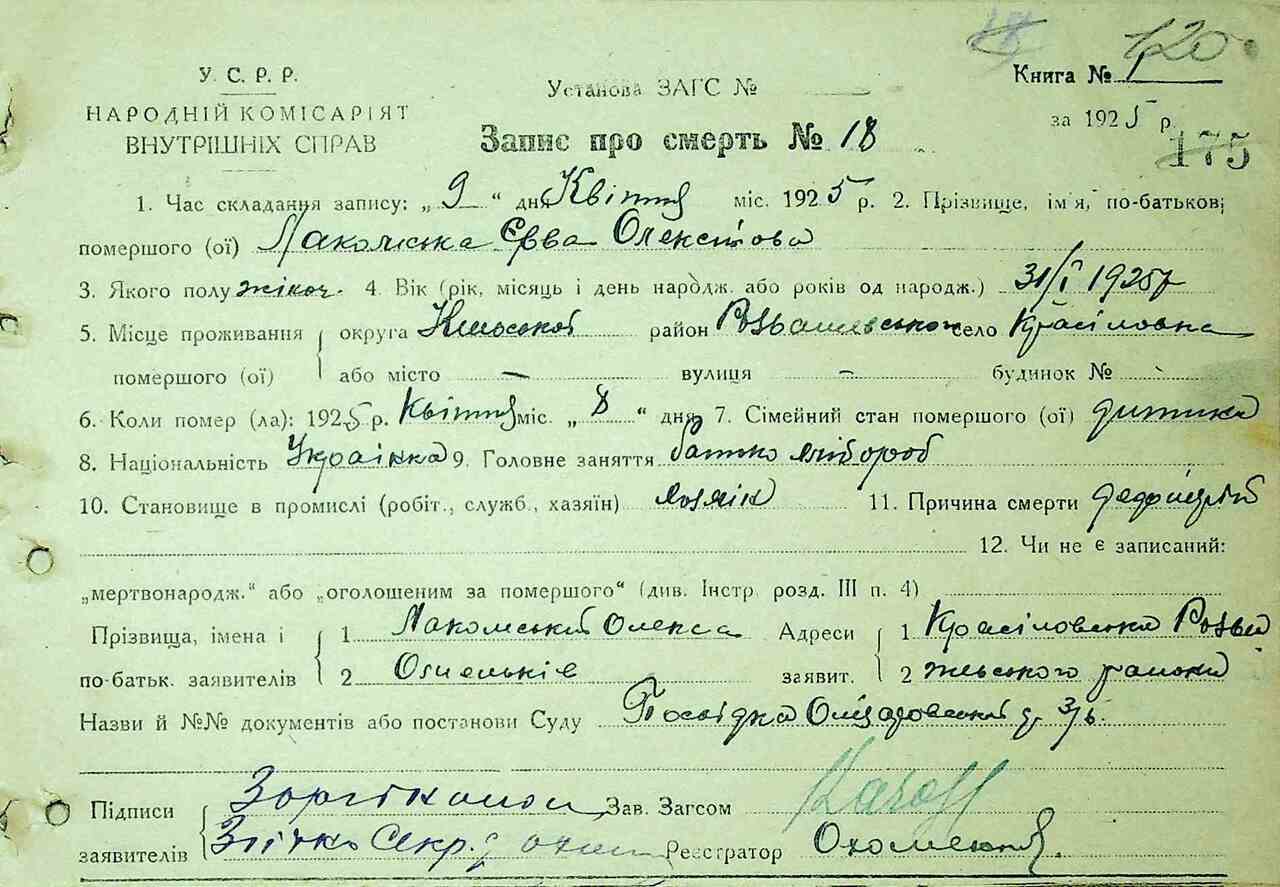 18 120
У. С. Р. Р.
НАРОДНІЙ КОМІСАРІЯТ
ВНУТРІШНІХ СПРАВ
Установа ЗАГС №
Книга № 1
за 1925 р.
Запис про смерть № 18
175
1. Час складання запису: „ 9 “ дня Квітня міс. 1925 р. 2. Прізвище, ім'я, по-батькові
помершого (ої) Лакомська Євва
3. Якого полу жіноч. 4. Вік (рік, місяць і день народж. або років од народж.) 31/І 1925 р
5. Місце проживання округа район село Красіловка
помершого (ої) або місто — вулиця — будинок №
6. Коли помер (ла): 1925 р. Квітня міс. „ 8 “ дня 7. Сімейний стан помершого (ої) дитина
8. Національність Українка 9. Головне заняття батько хлібороб
10. Становище в промислі (робіт., служб., хазяїн) 11. Причина смерти
12. Чи не є записаний:
„мертвонародж.“ або „оголошеним за помершого“ (див. Інстр. розд. III п. 4)
Прізвища, імена і 1 Лакомський Олекса Адреси 1
по-батьк. заявителів 2 заявит. 2 району
Назви й №№ документів або постанови Суду Посвідка
Підписи Зав. Загсом
заявителів Секр. Реєстратор